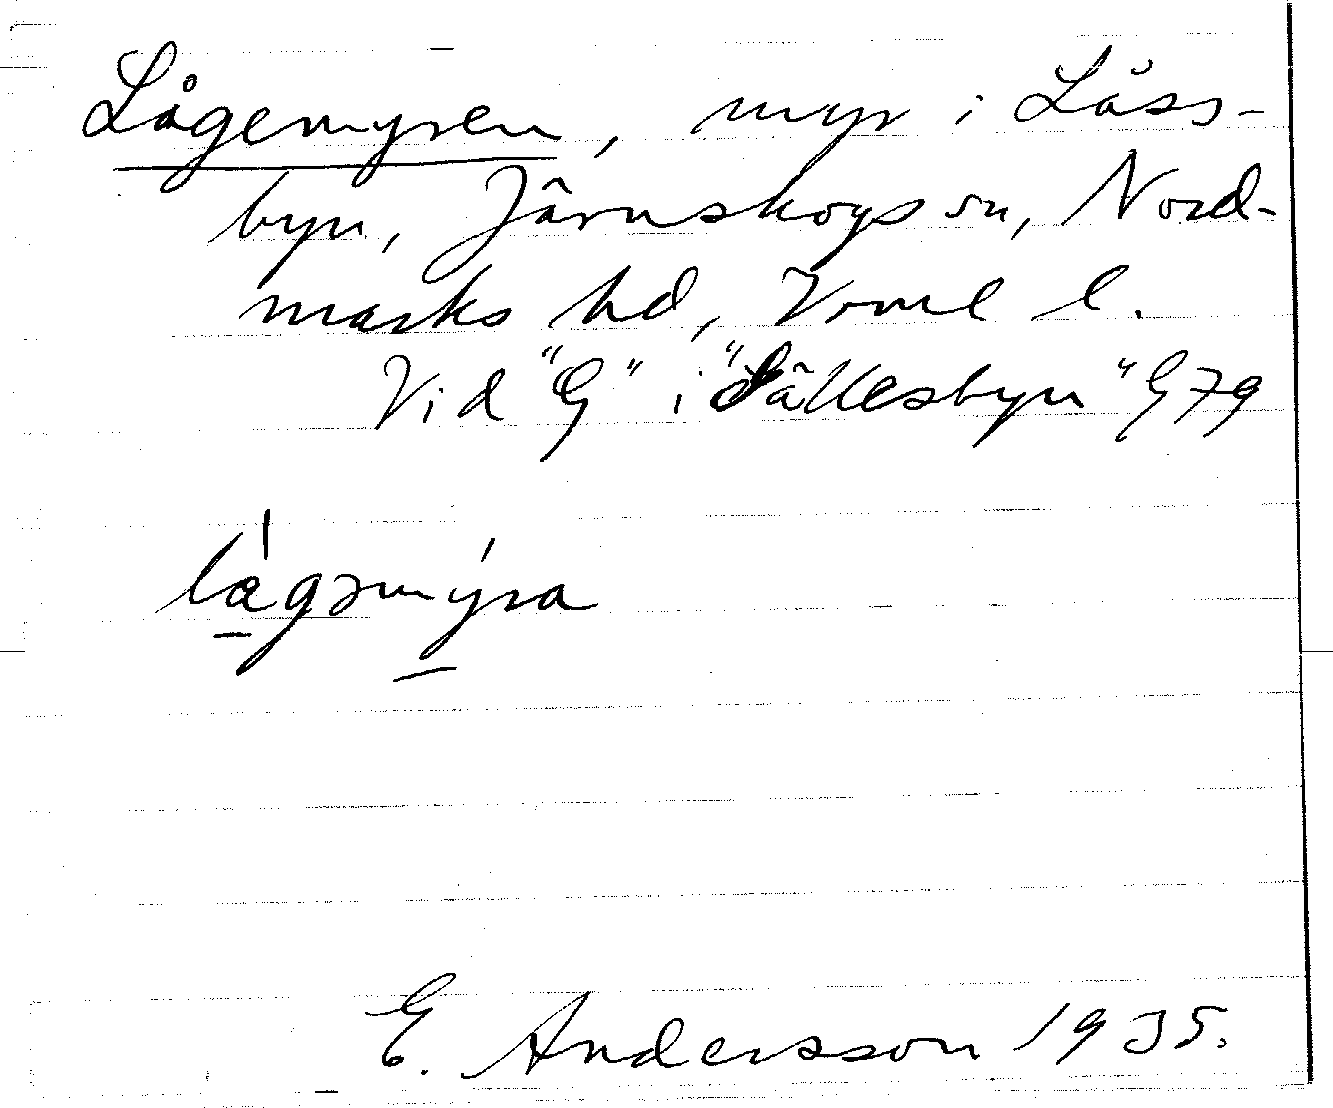 Lågemyren, myr i Läss-
byn, Järnskogs sn, Nord-
marks hd, Verml l.
Vid "G" i "Sällesbyn" G79
lågəmýra
E. Andersson 1935.